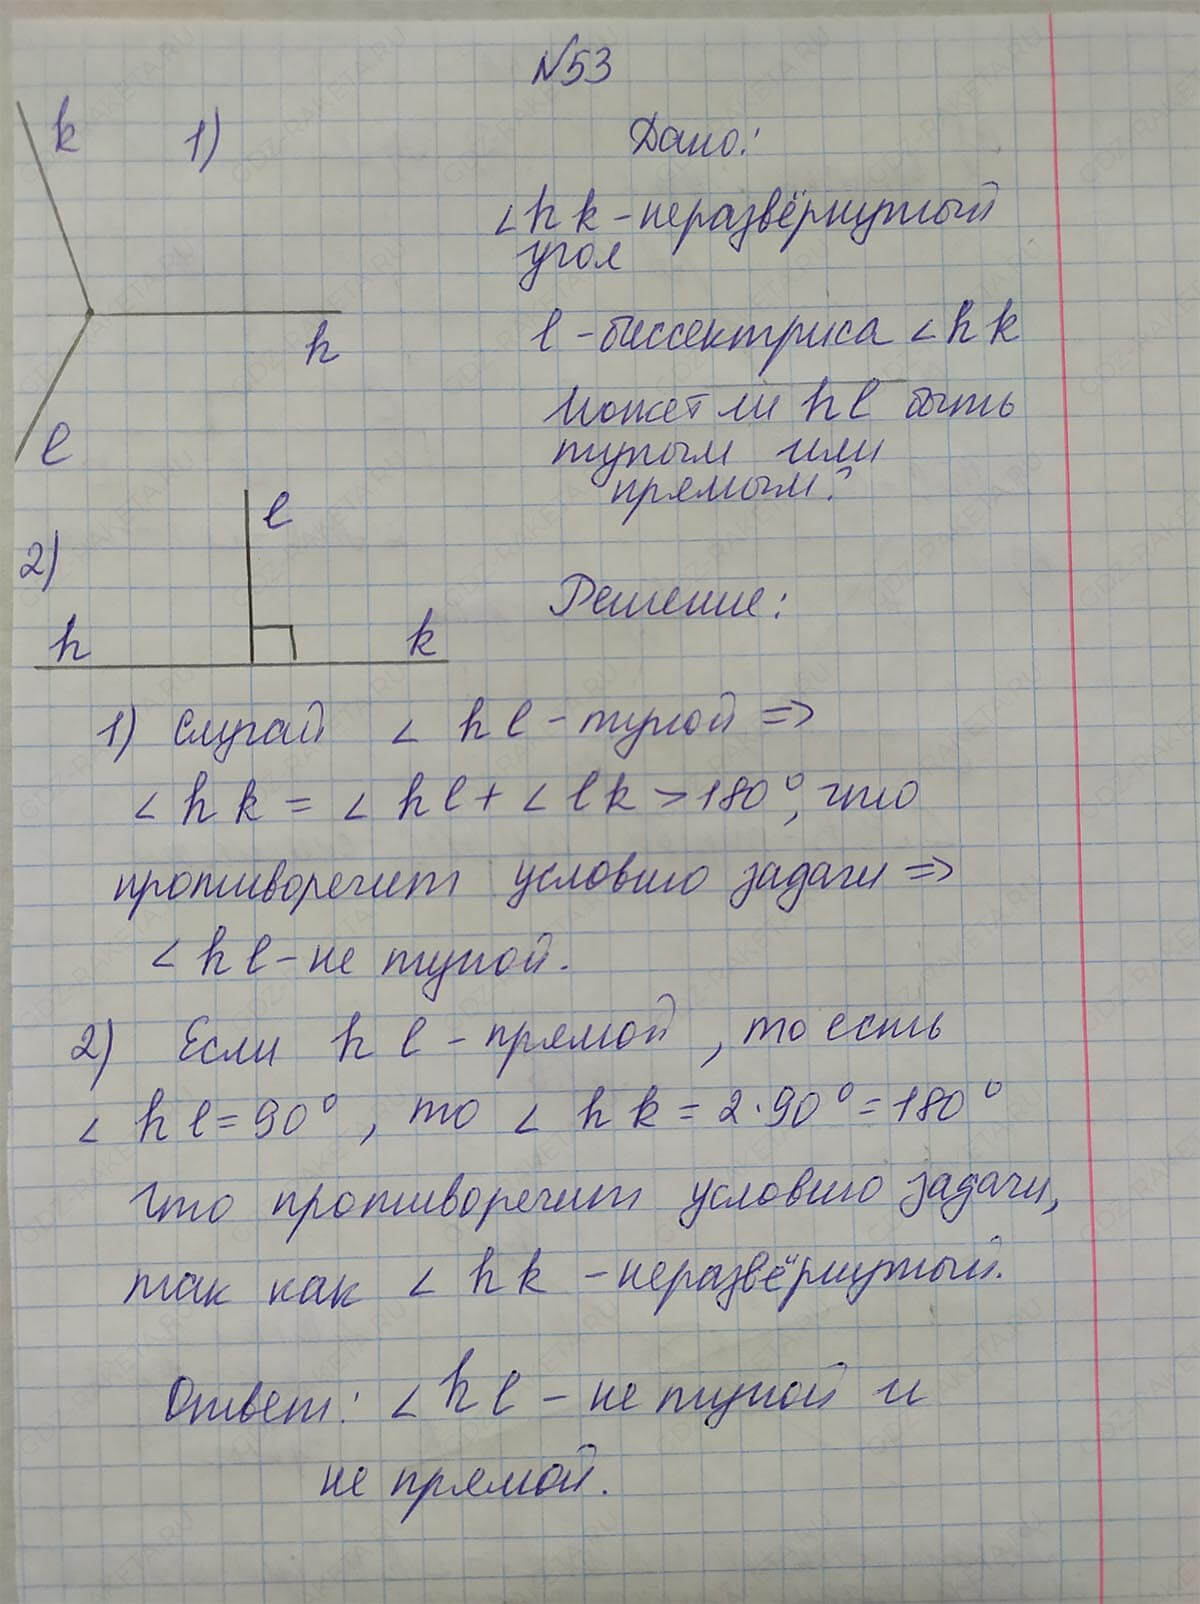 №53
k 1)
Дано:
∠hk - неразвёрнутый
угол
h
l - биссектриса ∠hk
Может ли hl быть
l
тупым или
прямым?
l
2)
Решение:
h k
1) Случай ∠hl - тупой =>
∠hk = ∠hl + ∠lk > 180°, что
противоречит условию задачи =>
∠hl - не тупой.
2) Если hl - прямой, то есть
∠hl = 90°, то ∠hk = 2·90° = 180°
что противоречит условию задачи,
так как ∠hk - неразвёрнутый.
Ответ: ∠hl - не тупой и
не прямой.